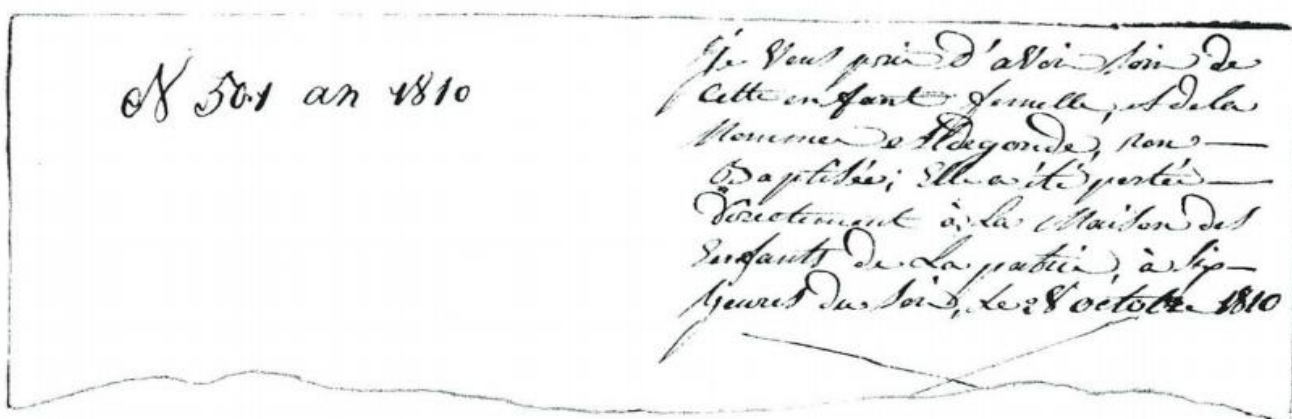 N 501 an 1810
Je Vous prie D'aVoir soin de
Cette enfant femelle, et de la
Nommer Aldegonde, non —
Baptisée; Elle a été portée —
Directement à La Maison des
Enfants de La patrie, à Six —
heures du Soir, Le 28 octobre 1810